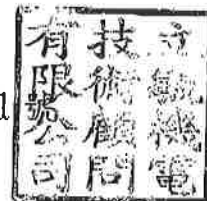 機電
技術顧問
有限公司